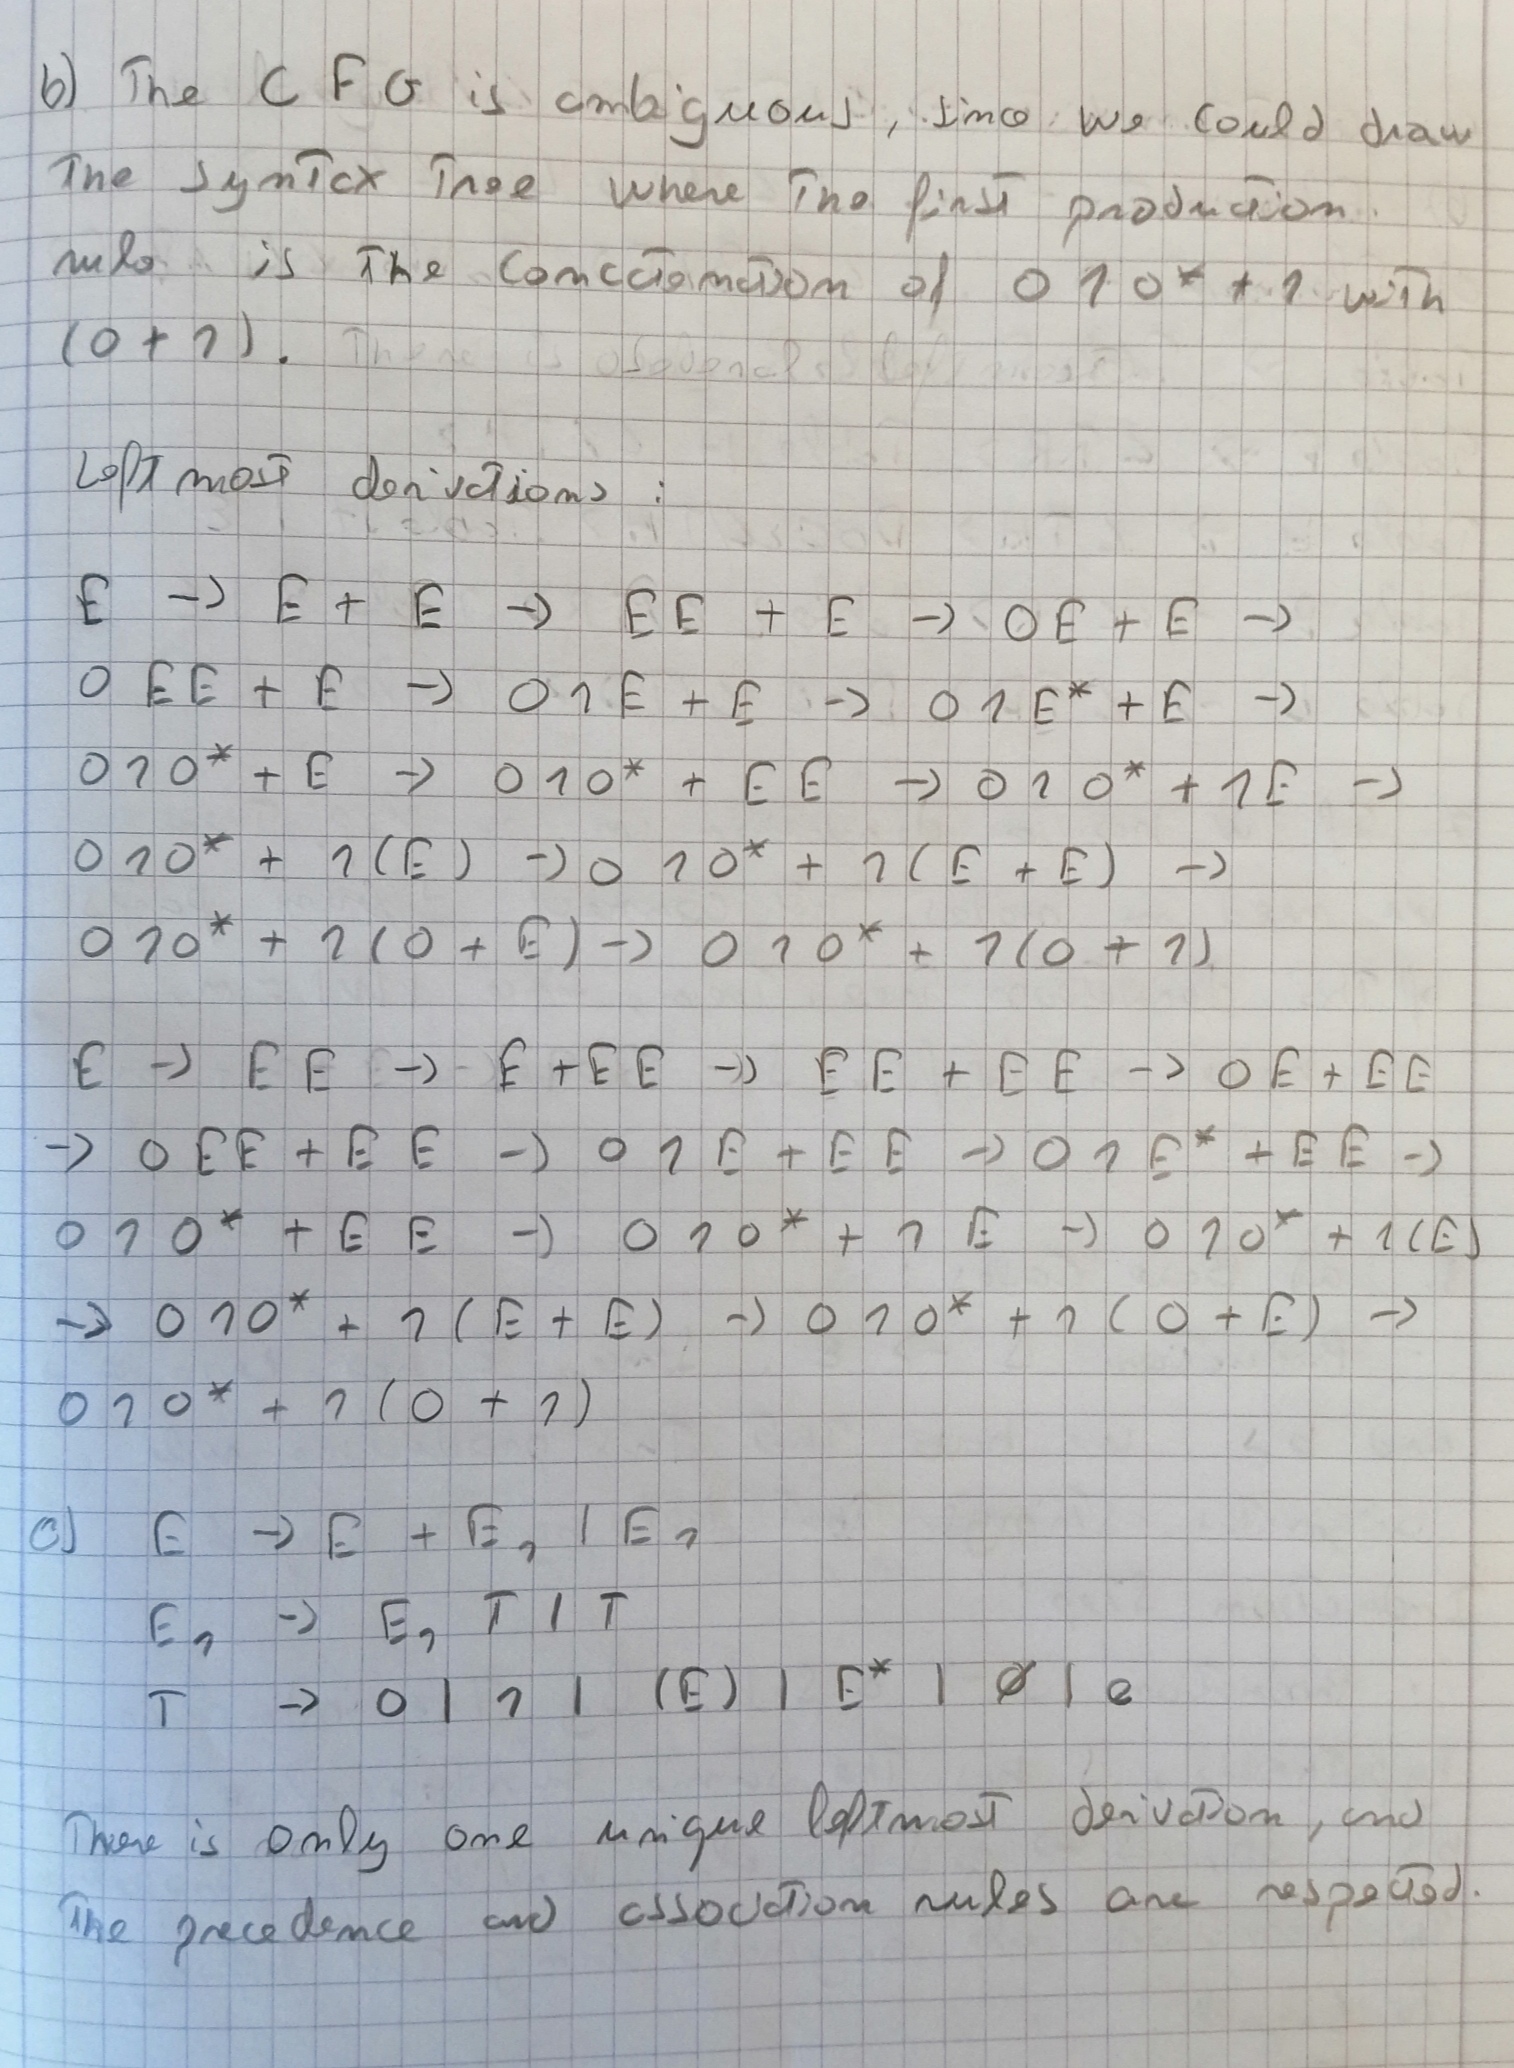 b) The CFG is ambiguous, since we could draw
the syntax tree where the first production
rule is the concatenation of 010* + 1 with
(0 + 1).
Leftmost derivations:
E → E + E → EE + E → 0E + E →
0EE + E → 01E + E → 01E* + E →
010* + E → 010* + EE → 010* + 1E →
010* + 1(E) → 010* + 1(E + E) →
010* + 1(0 + E) → 010* + 1(0 + 1)
E → EE → E + EE → EE + EE → 0E + EE
→ 0EE + EE → 01E + EE → 01E* + EE →
010* + EE → 010* + 1E → 010* + 1(E)
→ 010* + 1(E + E) → 010* + 1(0 + E) →
010* + 1(0 + 1)
c) E → E + E₁ | E₁
E₁ → E₁ T | T
T → 0 | 1 | (E) | E* | ∅ | e
There is only one unique leftmost derivation, and
the precedence and association rules are respected.